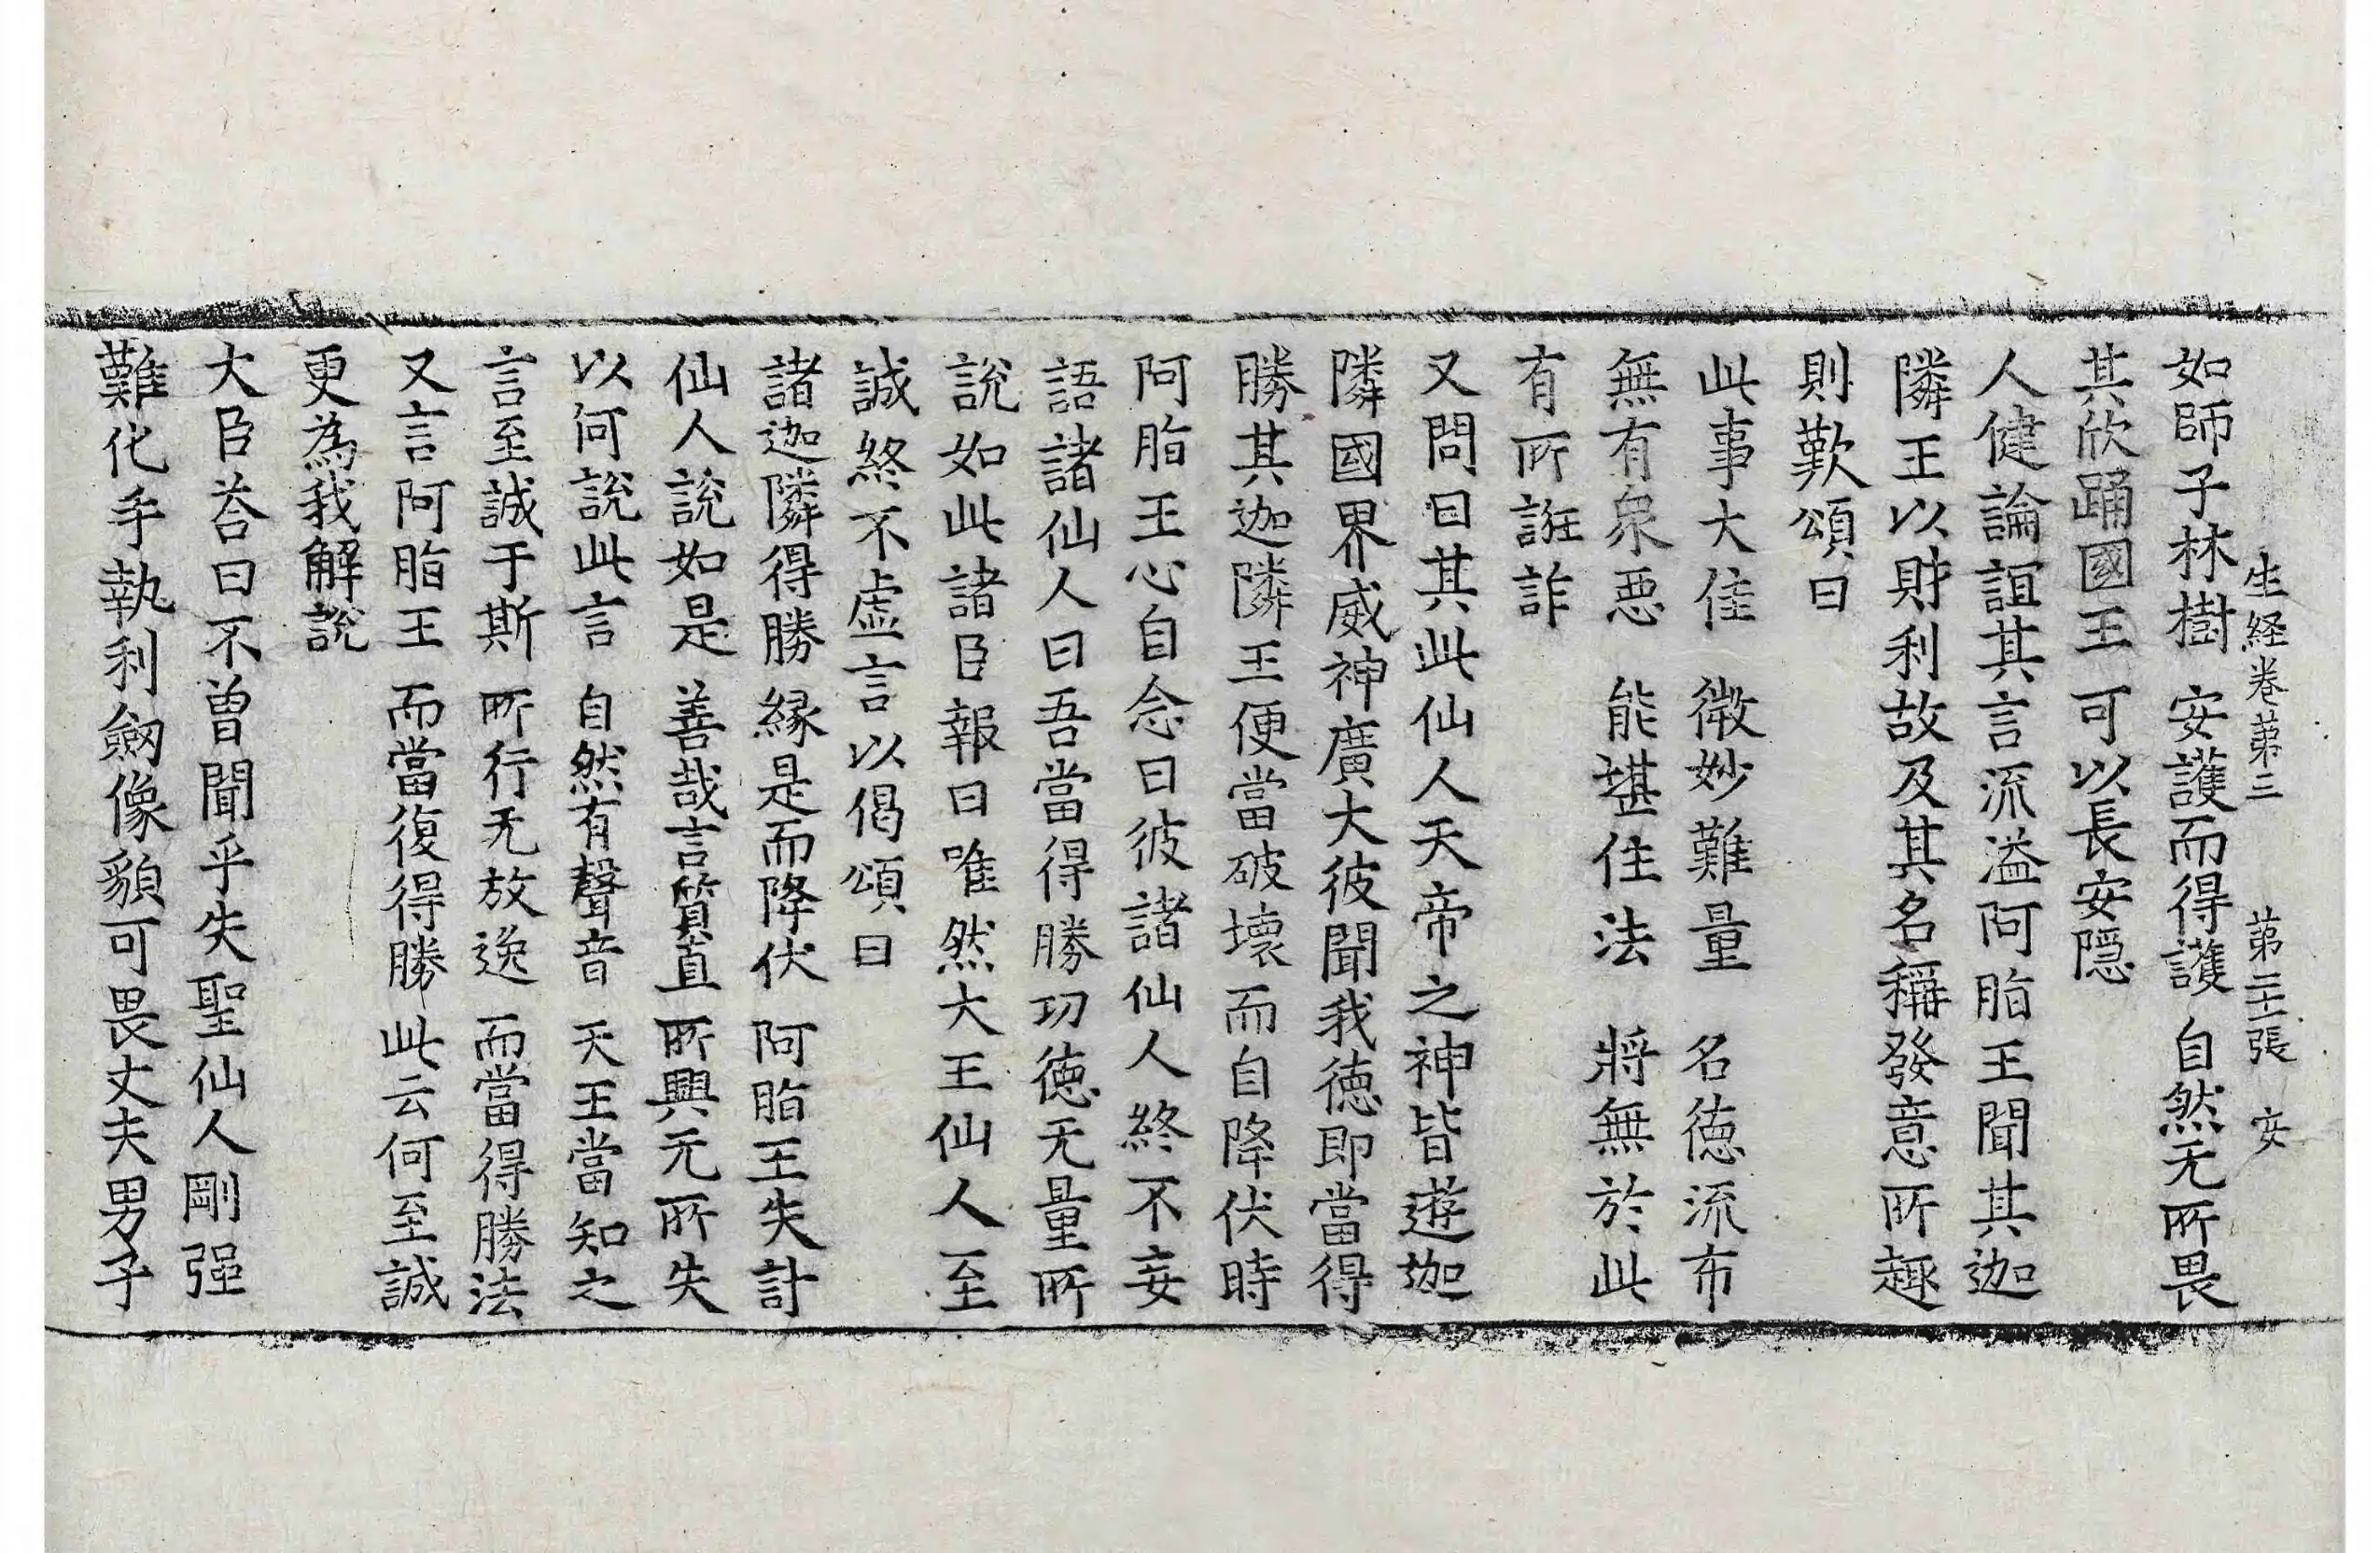 生経卷第三 第二十張 安
如師子林樹 安護而得護 自然无所畏
其欣踊國王 可以長安隠
人健論誼其言流溢阿脂王聞其迦
隣王以財利故及其名稱發意所趣
則歎頌曰
此事大佳 微妙難量 名徳流布
無有衆惡 能堪住法 將無於此
有所誑詐
又問曰其此仙人天帝之神皆遊迦
隣國界威神廣大彼聞我徳即當得
勝其迦隣王便當破壞而自降伏時
阿脂王心自念曰彼諸仙人終不妄
語諸仙人曰吾當得勝功徳无量所
說如此諸臣報曰唯然大王仙人至
誠終不虛言以偈頌曰
諸迦隣得勝 縁是而降伏 阿脂王失計
仙人說如是 善哉言質直 所興无所失
以何說此言 自然有聲音 天王當知之
言至誠于斯 所行无放逸 而當得勝法
又言阿脂王 而當復得勝 此云何至誠
更為我解說
大臣荅曰不曽聞乎失聖仙人剛強
難化手執利劔像貌可畏丈夫男子